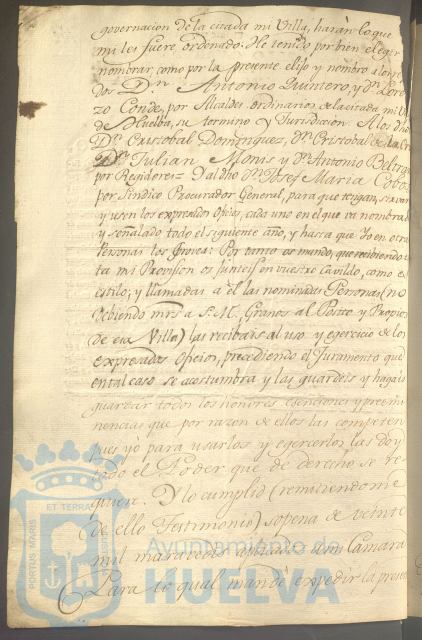 governacion de la citada mi Villa, harán lo que
mi les fuere ordenado. He tenido por bien elegir
nombrar, como por la presente elijo y nombro a los
Dos Dn. Antonio Quintero, y Dn. Loren
zo Conde, por Alcaldes ordinarios de la citada mi Villa
de Huelba, su termino y Jurisdicion. A los
Dn. Cristobal Dominguez, Dn. Cristobal de la
Dn. Julian Monis y Dn. Antonio Beltran
por Regidores: Y al dho Dn. Josef Maria Cobos
por Sindico Procurador General, para que tengan, sirvan
y usen los expresados oficios, cada uno en el que va nombrado
y señalado todo el siguiente año, y hasta que Yo en otras
Personas los Provea: Por tanto os mando, que recibiendo es
ta mi Provision os junteis en vuestro Cavildo, como es
estilo; y llamadas a él las nominadas Personas (no
debiendo mrs a S. M. Granos al Posito y Propios
de esa Villa) las recibais al uso y egercicio de los
expresados Oficios, precediendo el Juramento que
en tal caso se acostumbra y las guardeis y hagais
guardar todos los honores, esenciones y preemi
nencias que por razon de ellos las competen
pues yo para usarlos y egercerlos las doy
todo el Poder que de derecho se re
quiere. Y lo cumplid (remitiendome
de ello Testimonio) sopena de veinte
mil maravedis aplicados a mi Camara
Para lo qual mandé expedir la presen
PORTUS MARIS
ET TERRAE
Ayuntamiento de
HUELVA